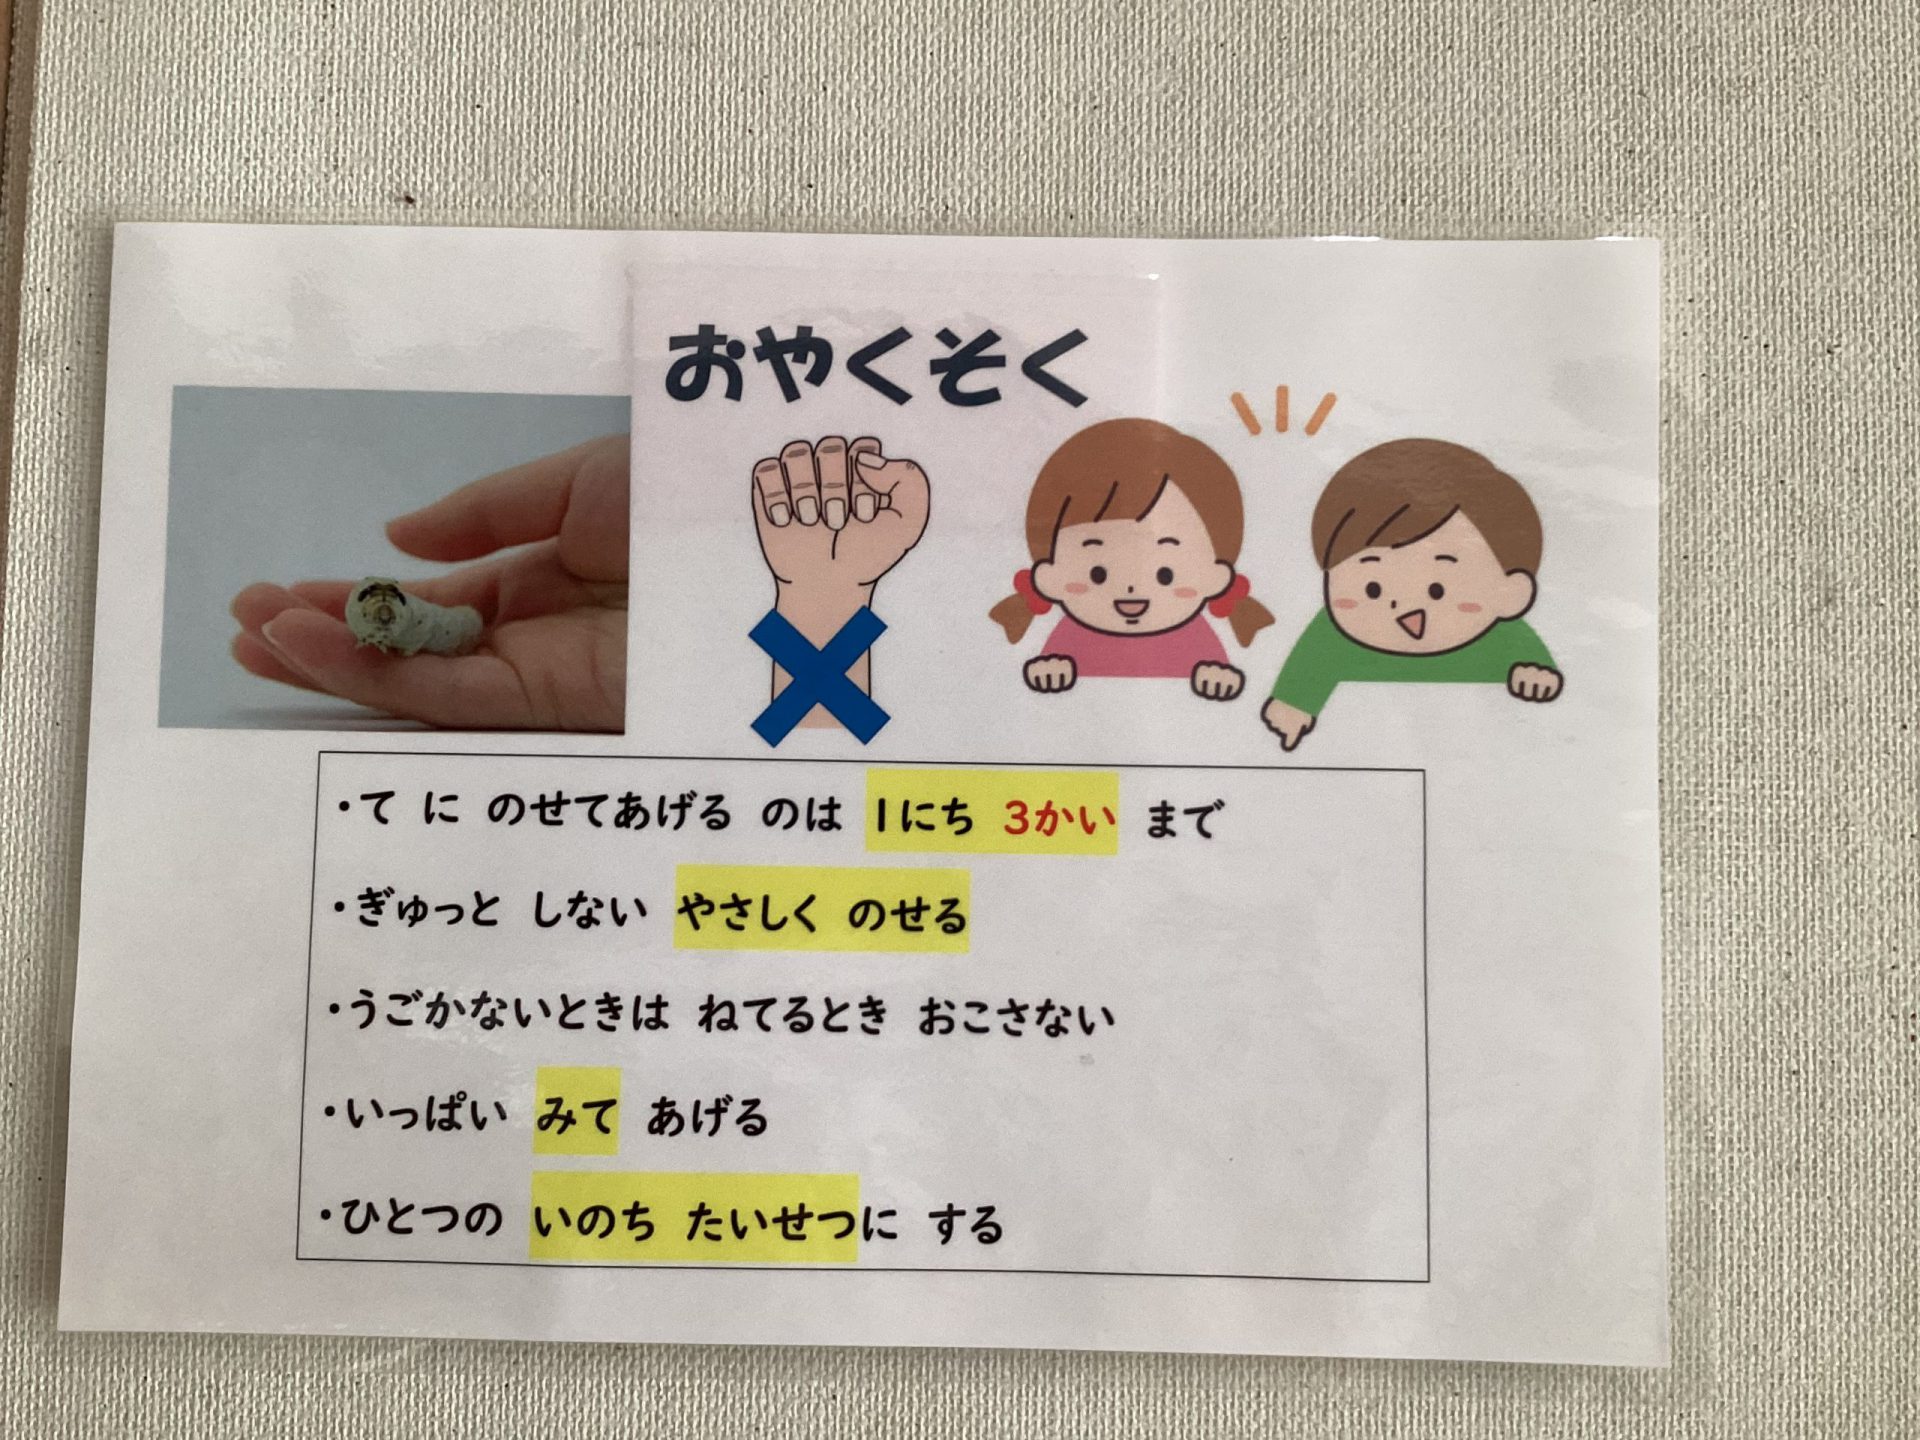 おやくそく
・て に のせてあげる のは 1にち 3かい まで
・ぎゅっと しない やさしく のせる
・うごかないときは ねてるとき おこさない
・いっぱい みて あげる
・ひとつの いのち たいせつに する